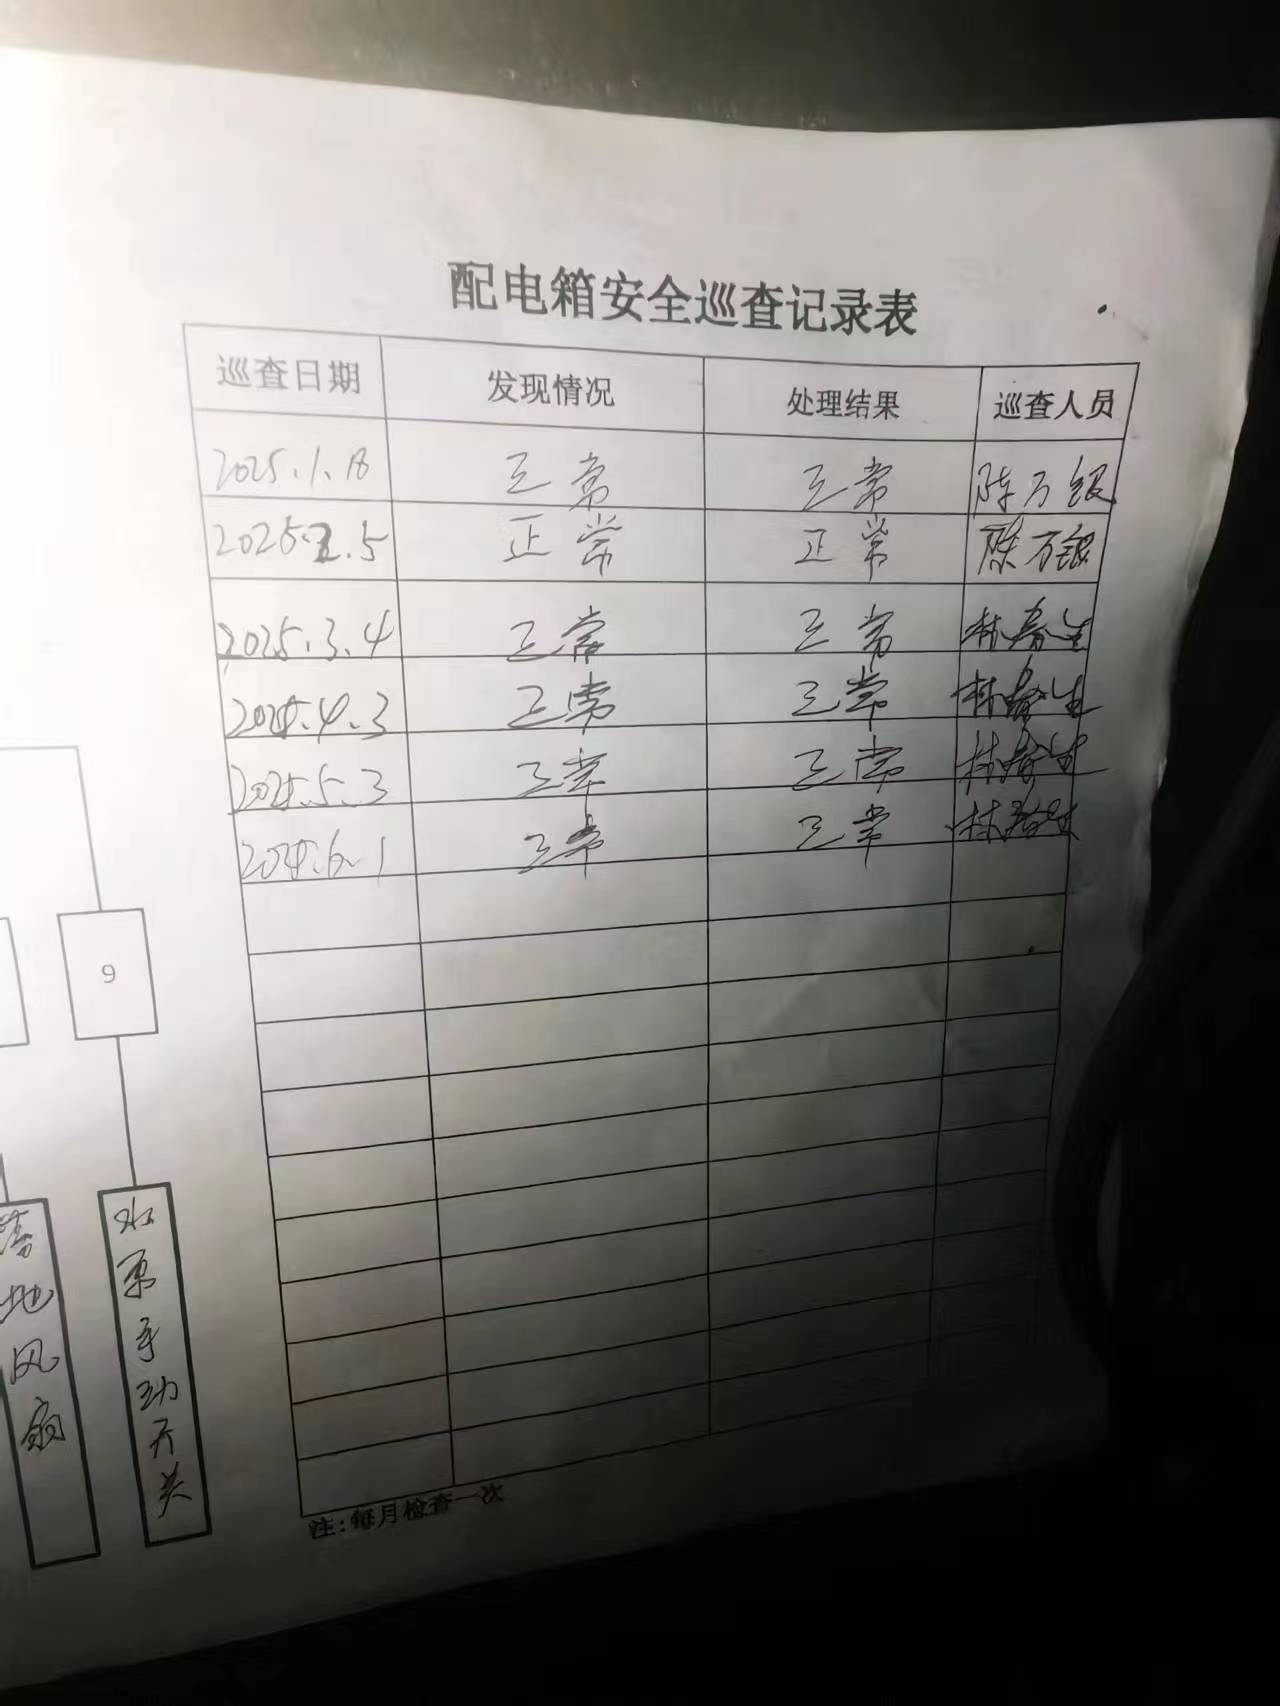 配电箱安全巡查记录表
巡查日期 发现情况 处理结果 巡查人员
2025.1.18 正常 正常 陈万银
2025.2.5 正常 正常 陈万银
2025.3.4 正常 正常 林春生
2025.4.3 正常 正常 林春生
2025.5.3 正常 正常 林春生
2025.6.1 正常 正常 林春生
注:每月检查一次
9
落地风扇
水泵手动开关